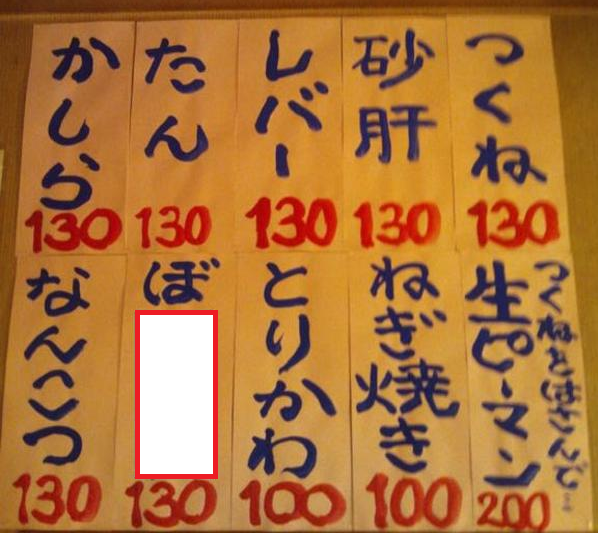 つくね
130
砂肝
130
レバー
130
たん
130
かしら
130
つくねをはさんで…
生ピーマン
200
ねぎ焼き
100
とりかわ
100
ぼ
130
なんこつ
130